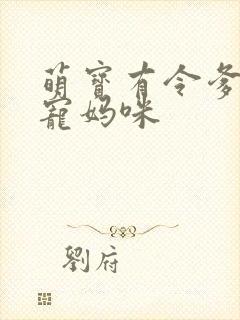 萌寶有令爹
寵媽咪
劉府